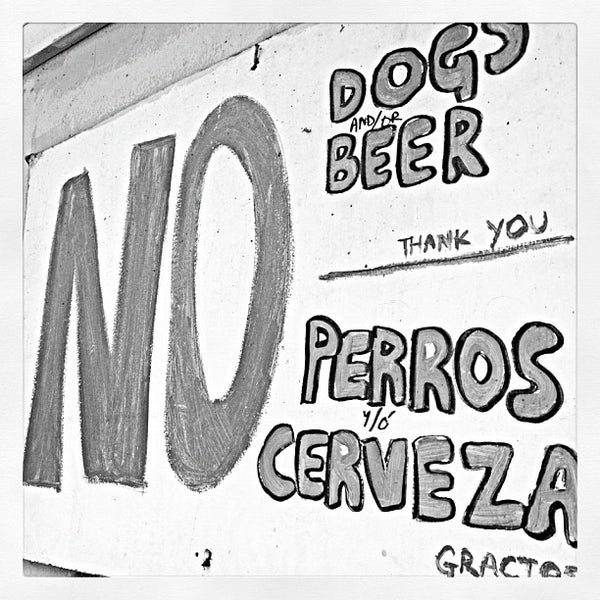 NO
DOGS
AND/OR
BEER
THANK YOU
PERROS
Y/Ó
CERVEZA